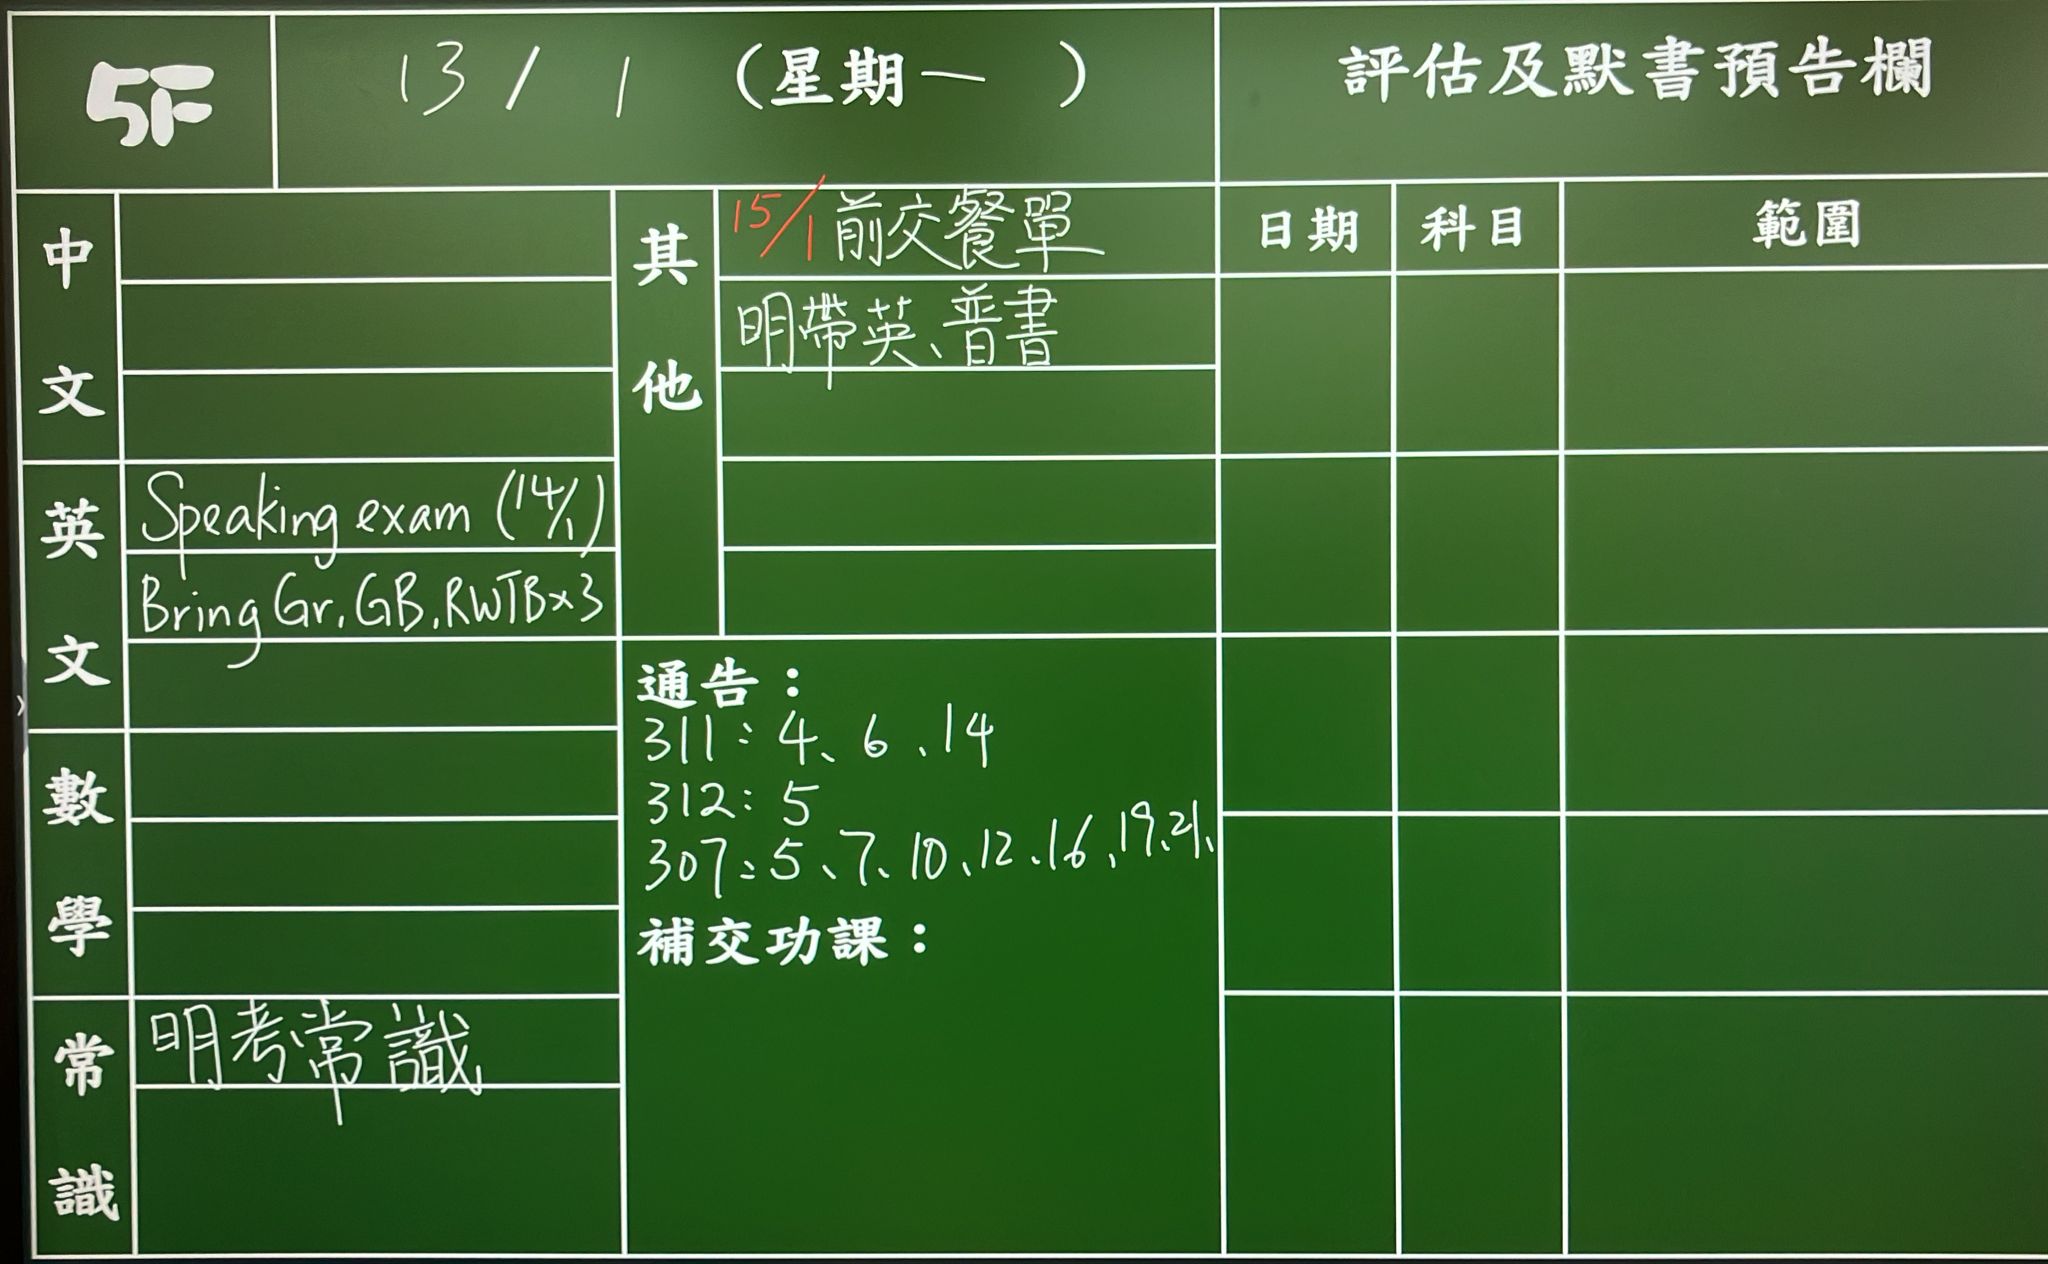 5F
13 / 1 (星期一 )
評估及默書預告欄
中文
英文
Speaking exam (14/1)
Bring Gr, GB, RWTB×3
數學
常識
明考常識
其他
15/1前交餐單
明帶英、普書
通告：
311：4、6、14
312：5
307：5、7、10、12、16、19、21、
補交功課：
日期 科目 範圍